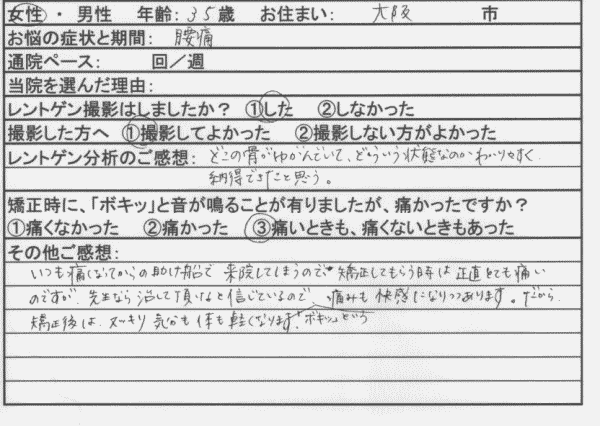 女性 ・ 男性 年齢: 35歳 お住まい: 大阪 市
お悩の症状と期間: 腰痛
通院ペース: 回/週
当院を選んだ理由:
レントゲン撮影はしましたか? ①した ②しなかった
撮影した方へ ①撮影してよかった ②撮影しない方がよかった
レントゲン分析のご感想: どこの骨がゆがんでいて、どういう状態なのかわかりやすく
納得できたと思う。
矯正時に、「ボキッ」と音が鳴ることが有りましたが、痛かったですか?
①痛くなかった ②痛かった ③痛いときも、痛くないときもあった
その他ご感想:
いつも痛くなってからの助け船で来院してしまうので矯正してもらう時は正直とても痛い
のですが、先生なら治して頂けると信じているので、痛みも快感になりつつあります。だから
矯正後は、スッキリ気分も体も軽くなります!ボキッという